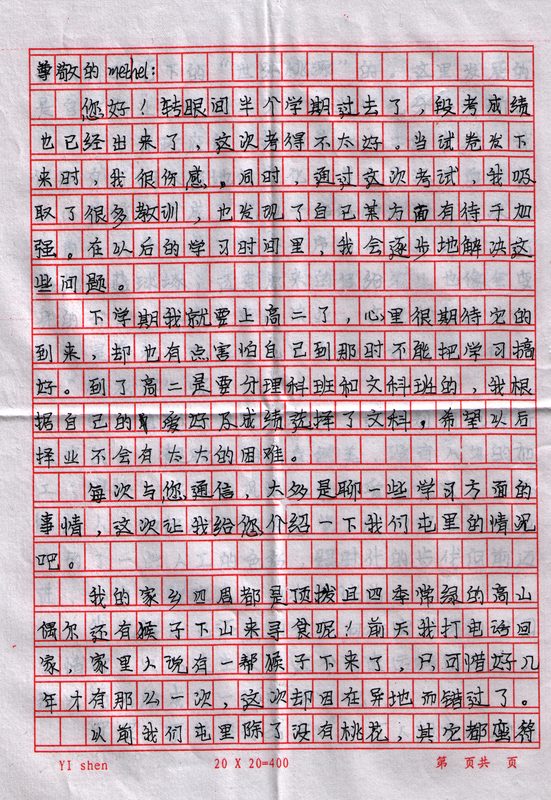 尊敬的 methel:
您好！转眼间半个学期过去了，段考成绩
也已经出来了，这次考得不太好。当试卷发下
来时，我很伤感。同时，通过这次考试，我吸
取了很多教训，也发现了自己某方面有待于加
强。在以后的学习时间里，我会逐步地解决这
些问题。
下学期我就要上高二了，心里很期待它的
到来，却也有点害怕自己到那时不能把学习搞
好。到了高二是要分理科班和文科班的，我根
据自己的爱好及成绩选择了文科。希望以后
择业不会有太大的困难。
每次与您通信，大多是聊一些学习方面的
事情，这次让我给您介绍一下我们屯里的情况
吧。
我的家乡四周都是顶拨且四季常绿的高山
偶尔还有猴子下山来寻食呢！前天我打电话回
家，家里人说有一帮猴子下来了，只可惜好几
年才有那么一次，这次却因在异地而错过了。
以前我们屯里除了没有桃花，其它都蛮符
YI shen 20 X 20=400 第 页共 页